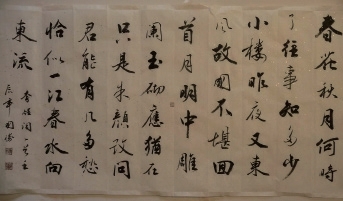 春花秋月何時
了往事知多少
小樓昨夜又東
風故國不堪回
首月明中雕
闌玉砌應猶在
只是朱顏改問
君能有几多愁
恰似一江春水向
東流
李煜詞一